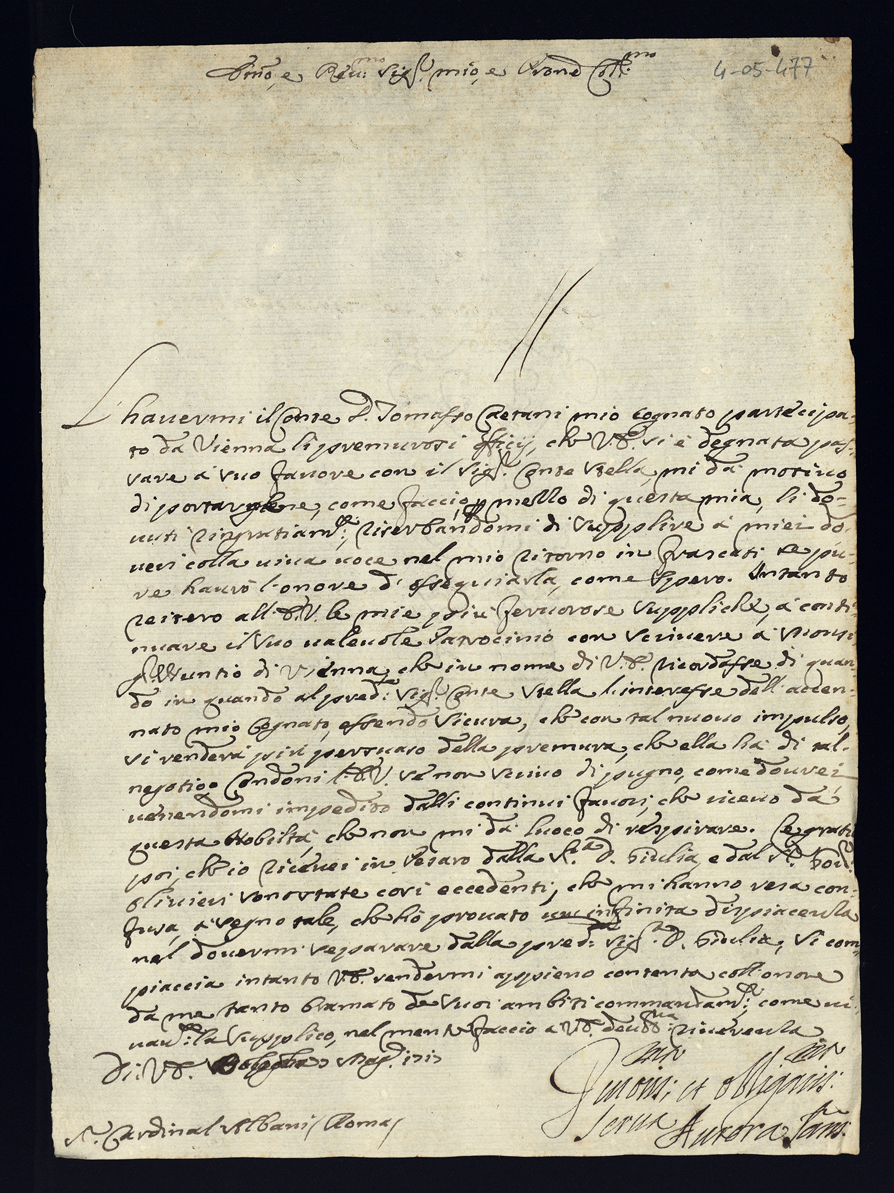 Emo, e Revmo Sigr. mio, e Prone Colmo
4-05-477
L'havermi il Conte D. Tomasso Caetani mio cognato partecipa-
to da Vienna li premurosi officij, che V.E. si è degnata pas-
sare à suo favore con il Sigr. Conte Stella, mi dà motivo
di portargliene, come faccio p mezzo di questa mia, li do-
uuti ringratiamti, riserbandomi di supplire à miei do-
ueri colla uiua uoce nel mio ritorno in Frascati se pu-
re haurò l'onore d'ossequiarla, come spero. Intanto
reitero all'E.V. le mie più feruorose suppliche, à conti-
nuare il suo ualeuole Patrocinio con scriuere à Monsr
Nuntio di Vienna, che in nome di V.E. ricordasse di quan-
do in quando al pred. Sigr. Conte Stella l'interesse dell'accen-
nato mio Cognato, essendo sicura, che con tal nuouo impulso,
si renderà più persuaso della premura, che ella hà di tal
negotio. Condoni l'E.V. se non scriuo di pugno, come dourei
uenendomi impedito dalli continui fauori, che riceuo da
questa Nobiltà, che non mi dà luoco di respirare. Le gratie
poi, che io riceuei in Pesaro dalla Sra D. Giulia, e dal Sr.
Oliuieri sono state cosi eccedenti, che mi hanno resa con-
fusa, à segno tale, che hò prouato un infinita dispiacenza
nel douermi separare dalla pred. Sigra D. Giulia; Si com-
piaccia intanto V.E. rendermi appieno contenta coll'onore
da me tanto bramato de suoi ambiti commandamti, come ui-
uamte la supplico, nel mentre faccio a V.E. riuerenza
Di V.E. Bologna Magg.
Diuotis: et obligatis:
Serua
Aurora
Sr. Cardinal Albani / Roma /